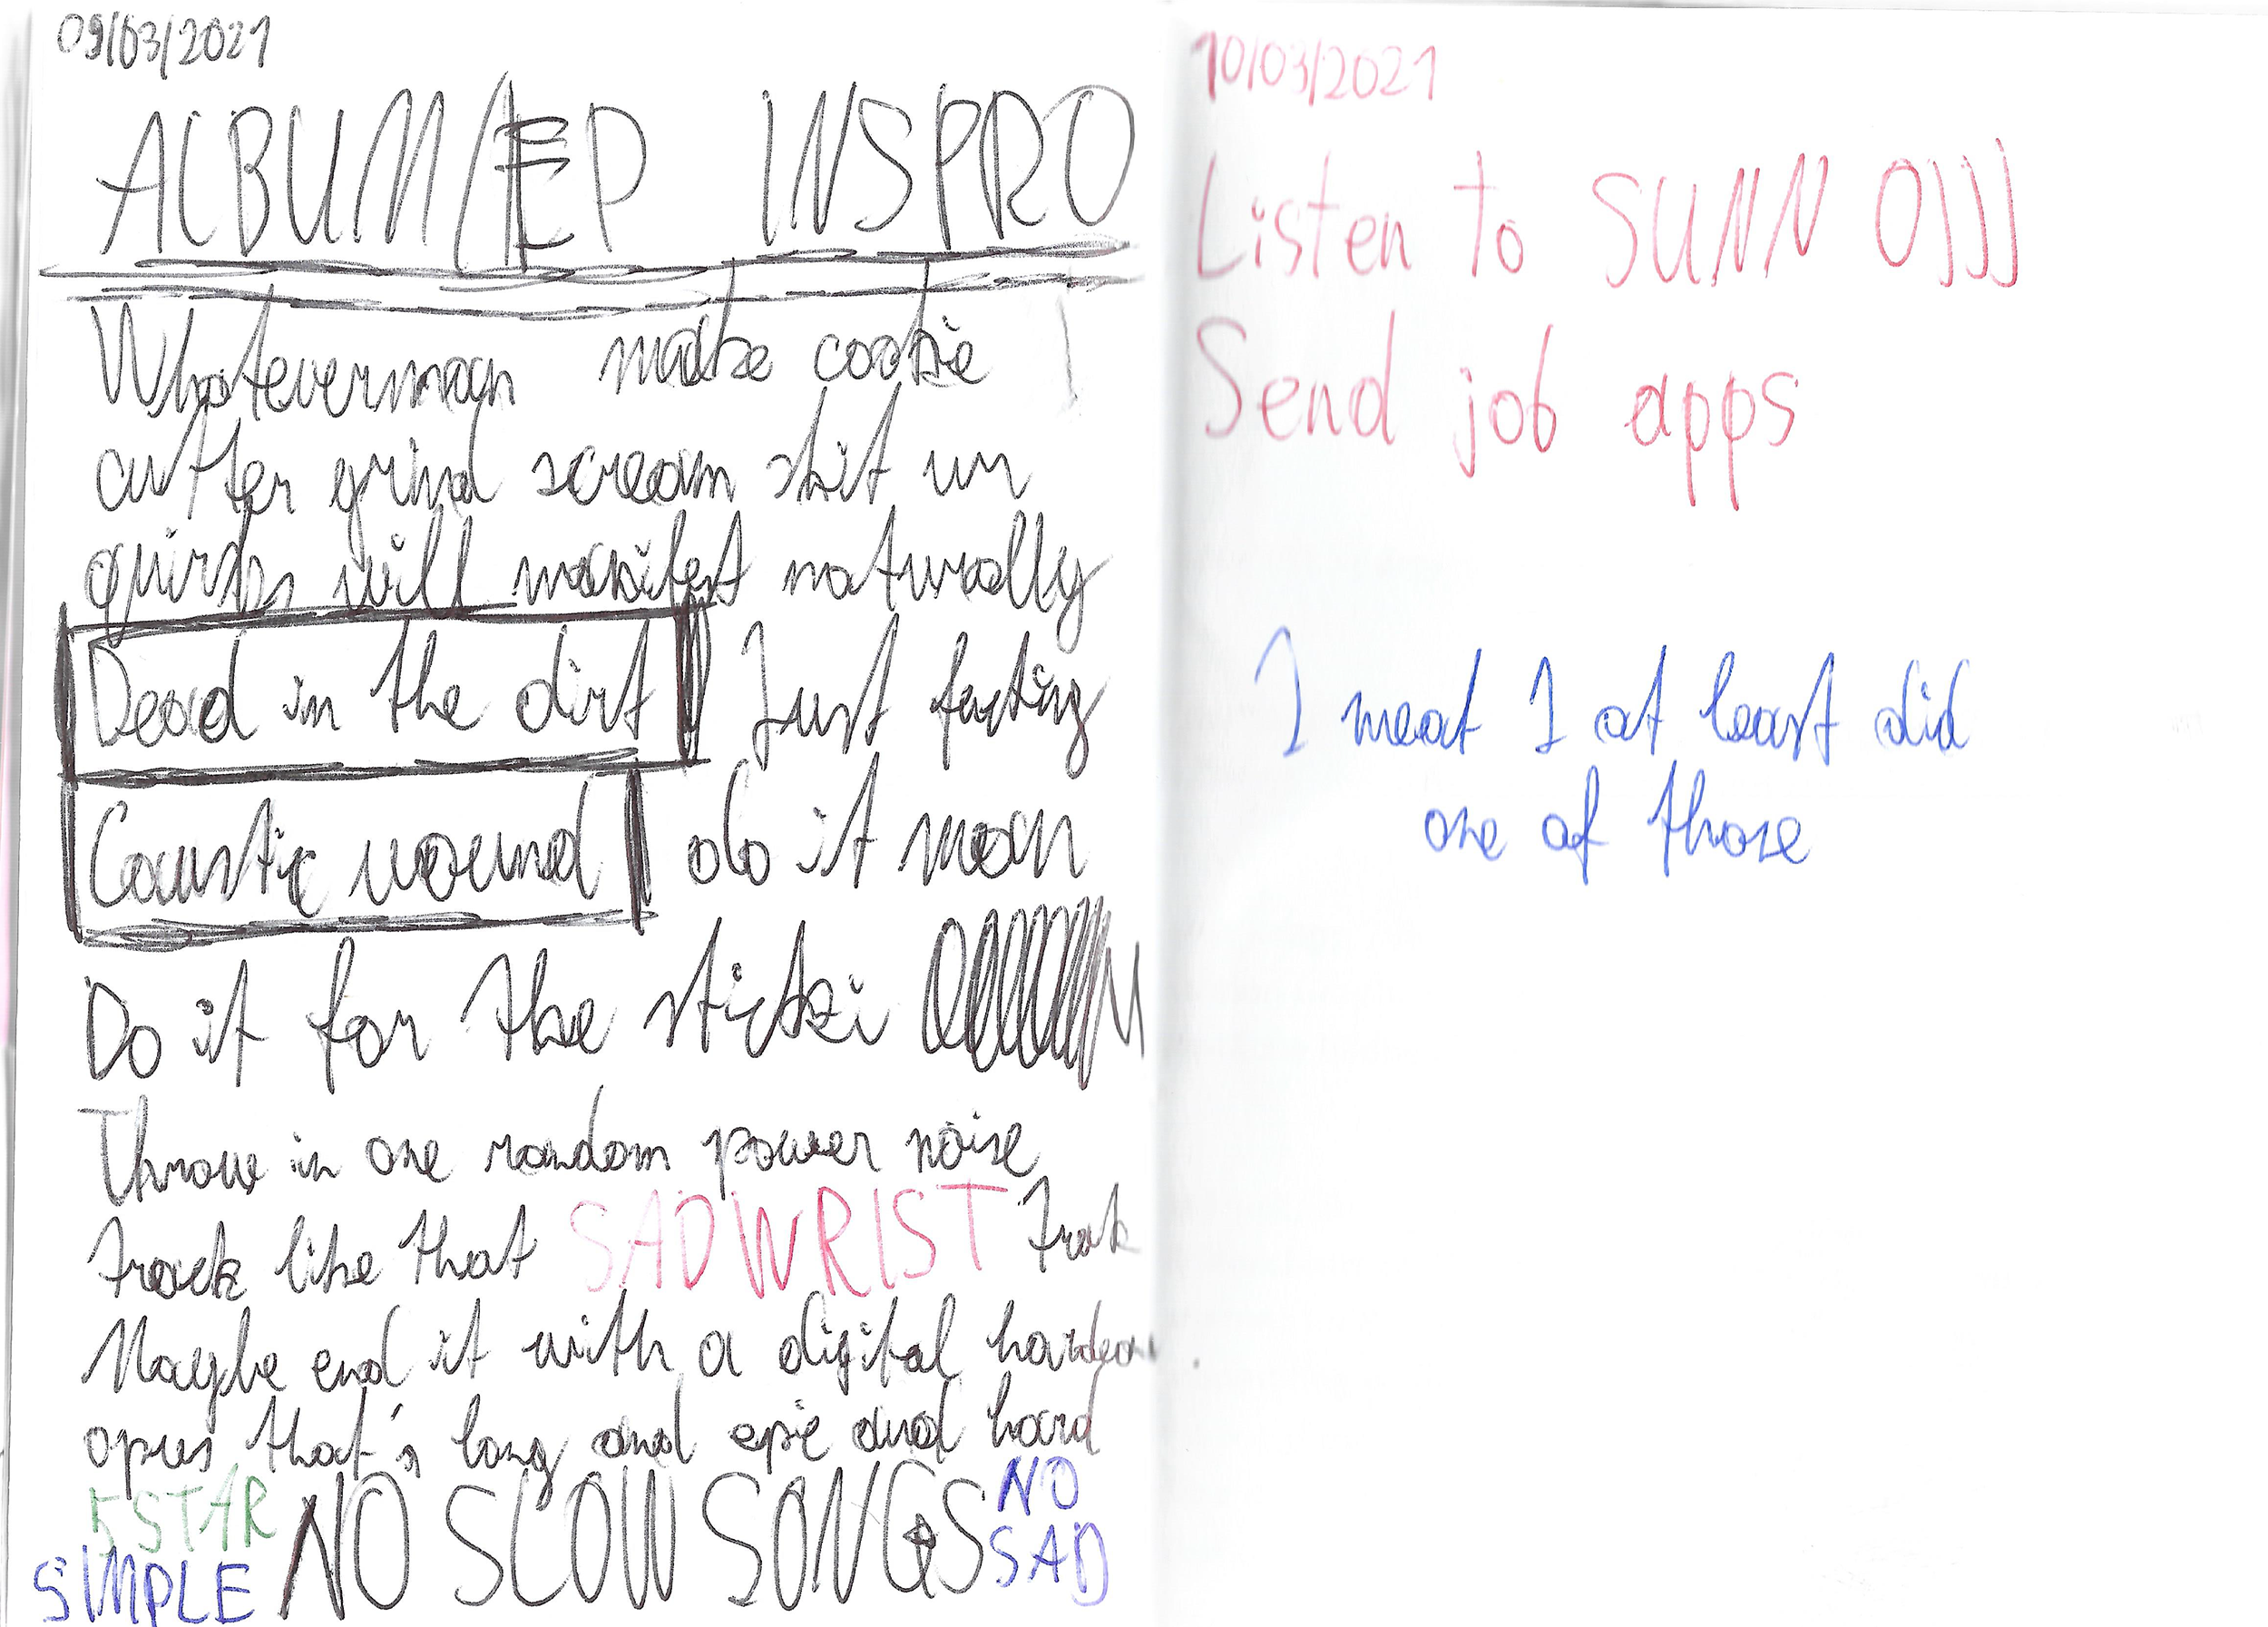 09/03/2021
ALBUM/EP INSPRO
Whateverman make cookie
cutter grind scream shit ur
quirks will manifest naturally
Dead in the dirt Just fucking
Caustic wound do it man
Do it for the sticki
Throw in one random power noise
track like that SADWRIST trak
Maybe end it with a digital
opus that's long and epic and hard
5 STAR NO SLOW SONGS NO
SIMPLE SAD
10/03/2021
Listen to SUNN O)))
Send job apps
I meat I at least did
one of those